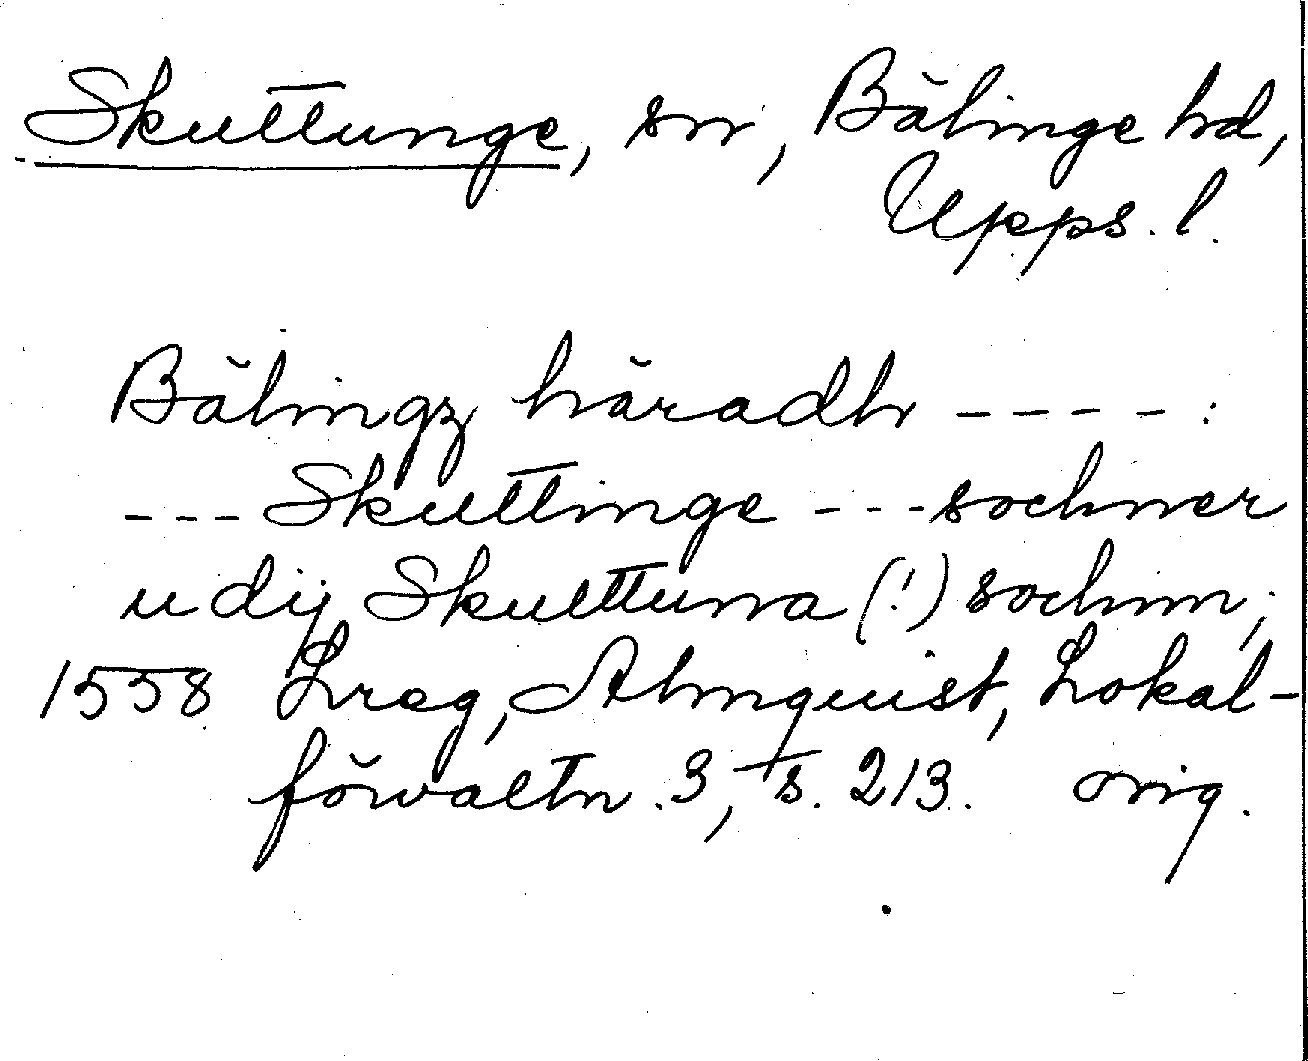 Skuttunge, sn, Bälinge hd,
Upps. l.
Bälingz häradh ---- :
--- Skuttinge --- sochner
udij Skulttuna (!) sochnn;
1558 Lreg, Almquist, Lokal-
förvaltn. 3, s. 213. orig.